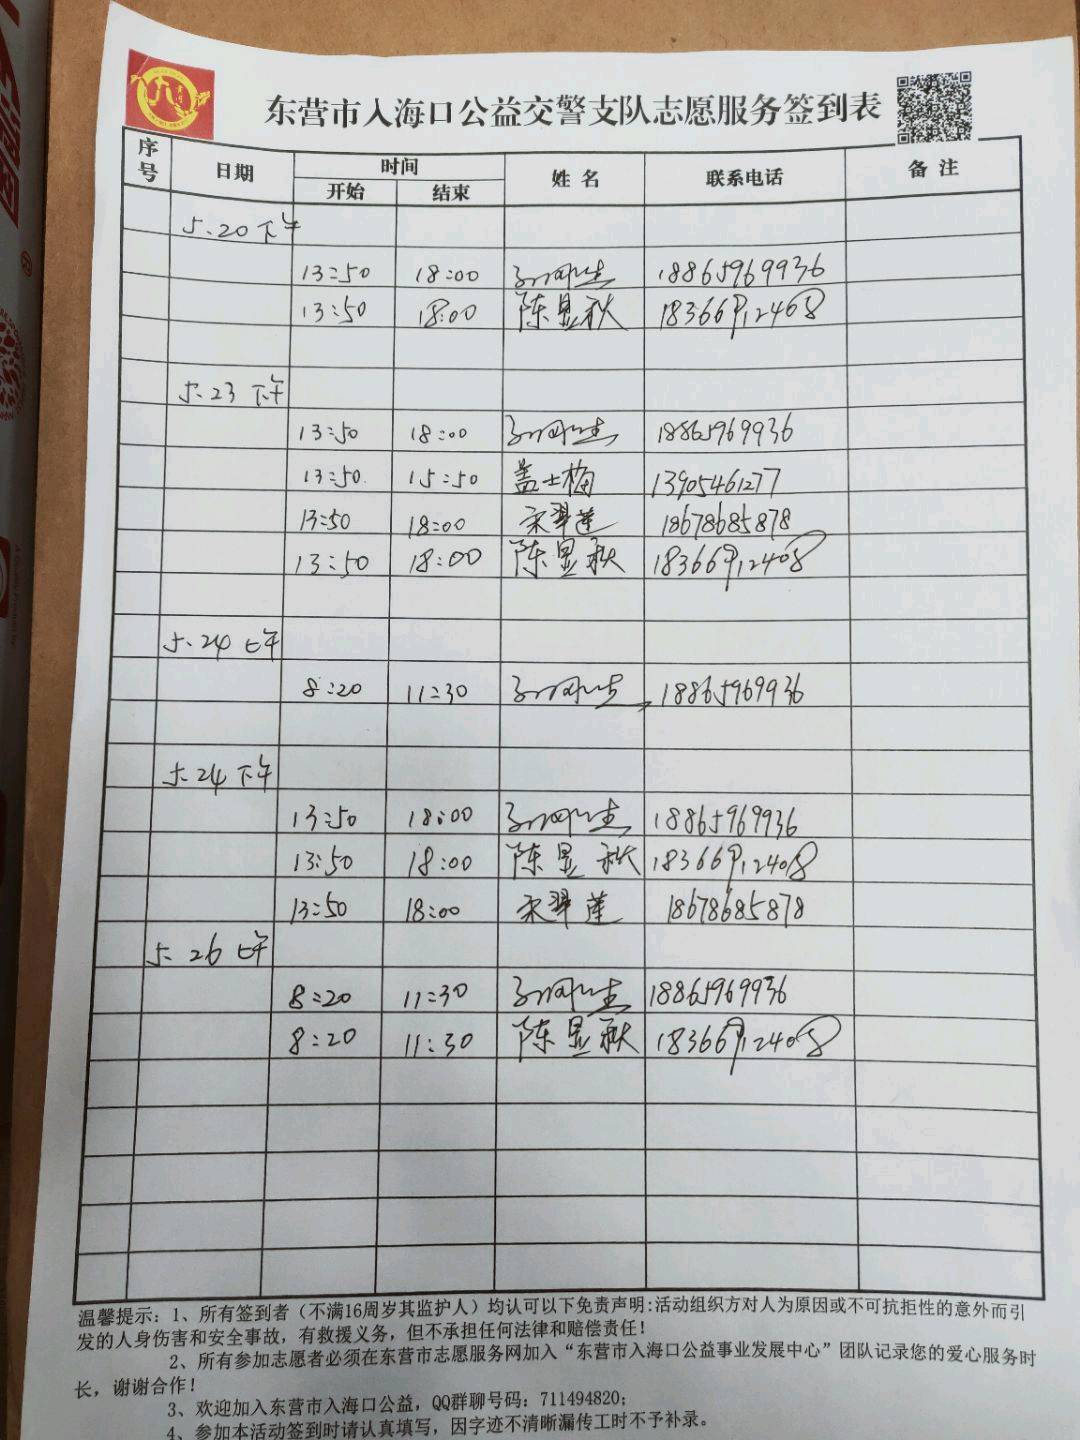 东营市入海口公益交警支队志愿服务签到表
序号 日期 时间 姓名 联系电话 备注
开始 结束
5.20下午
13:50 18:00 18865969936
13:50 18:00 陈显秋 18366912408
5.23下午
13:50 18:00 18865969936
13:50 15:50 盖士梅 13905461277
13:50 18:00 宋翠莲 18678685878
13:50 18:00 陈显秋 18366912408
5.24上午
8:20 11:30 18865969936
5.24下午
13:50 18:00 18865969936
13:50 18:00 陈显秋 18366912408
13:50 18:00 宋翠莲 18678685878
5.26上午
8:20 11:30 18865969936
8:20 11:30 陈显秋 18366912408
温馨提示:1、所有签到者(不满16周岁其监护人)均认可以下免责声明:活动组织方对人为原因或不可抗拒性的意外而引
发的人身伤害和安全事故,有救援义务,但不承担任何法律和赔偿责任!
2、所有参加志愿者必须在东营市志愿服务网加入“东营市入海口公益事业发展中心”团队记录您的爱心服务时
长,谢谢合作!
3、欢迎加入东营市入海口公益,QQ群聊号码:711494820;
4、参加本活动签到时请认真填写,因字迹不清晰漏传工时不予补录。